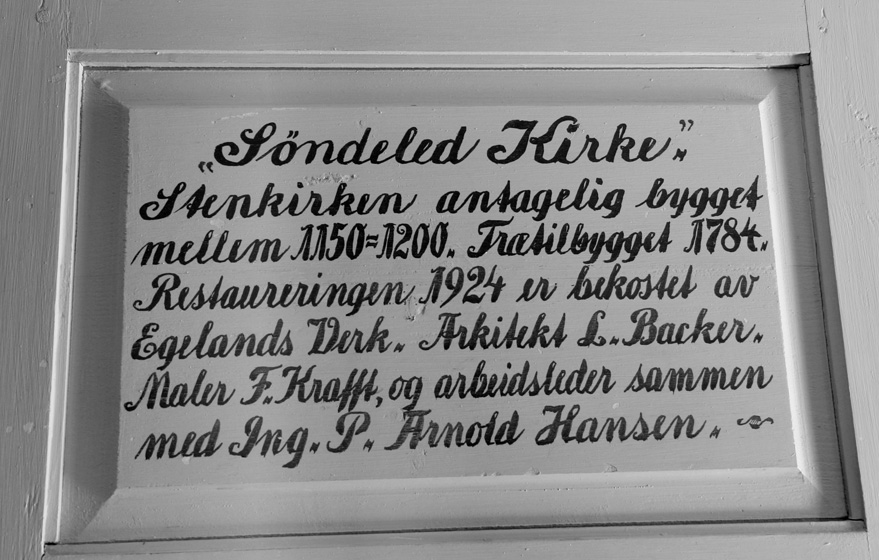 „Söndeled Kirke”.
Stenkirken antagelig bygget
mellem 1150=1200. Trætilbygget 1784.
Restaureringen 1924 er bekostet av
Egelands Verk. Arkitekt L. Backer.
Maler F. Krafft, og arbeidsleder sammen
med Ing. P. Arnold Hansen. ~